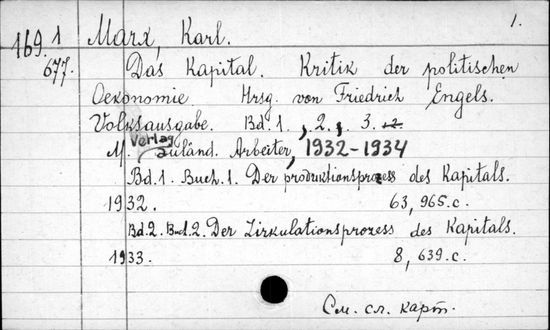 1.
169.1 Marx, Karl.
677. Das Kapital. Kritik der politischen
Oekonomie Hrsg. von Friedrich Engels.
Volksausgabe. Bd. 1., 2., 3.
M. Verlag ausländ. Arbeiter, 1932-1934
Bd.1. Buch.1. Der produktionsprozess des Kapitals.
1932. 63, 965.c.
Bd.2. Buch.2. Der Zirkulationsprozess des Kapitals.
1933. 8, 639.c.
См. сл. карт.